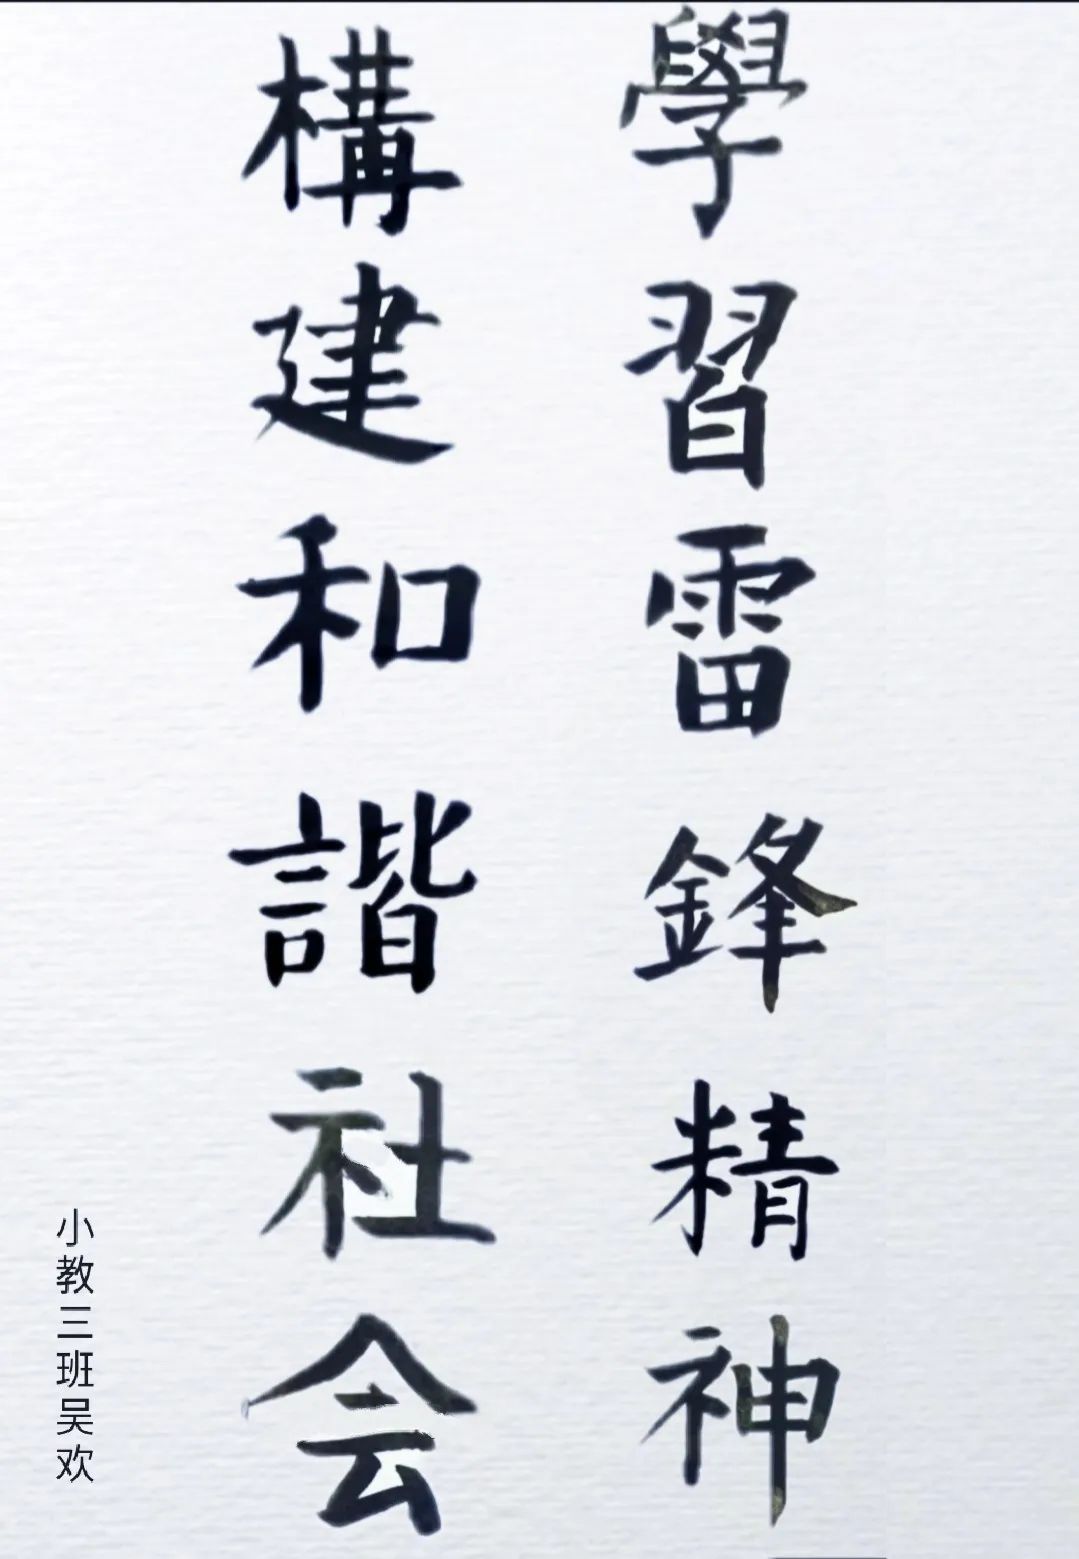 學習雷鋒精神
構建和諧社会
小教三班吴欢